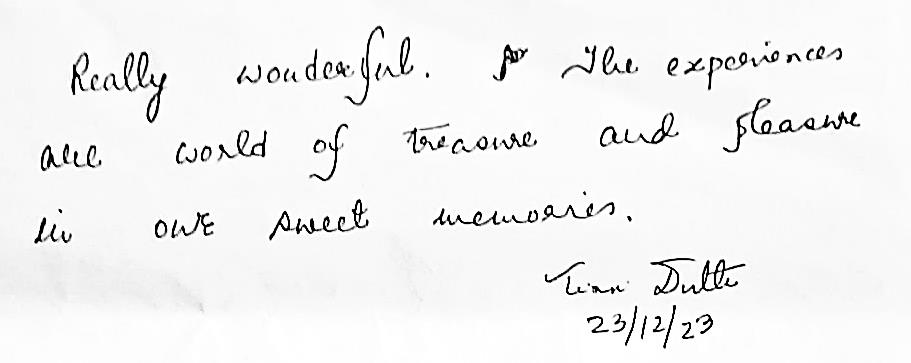 Really wonderful. The experiences
are world of treasure and pleasure
in our sweet memories.
Dutta
23/12/23